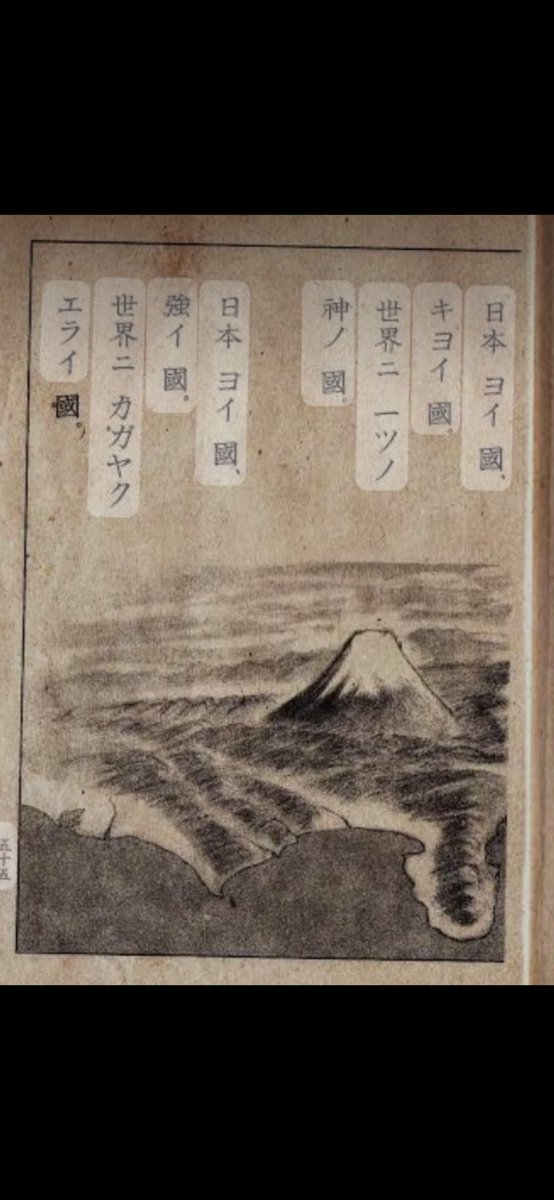 日本 ヨイ 國、
キヨイ 國。
世界ニ 一ツノ
神ノ 國。
日本 ヨイ 國、
強イ 國。
世界ニ カガヤク
エライ 國。
五十五